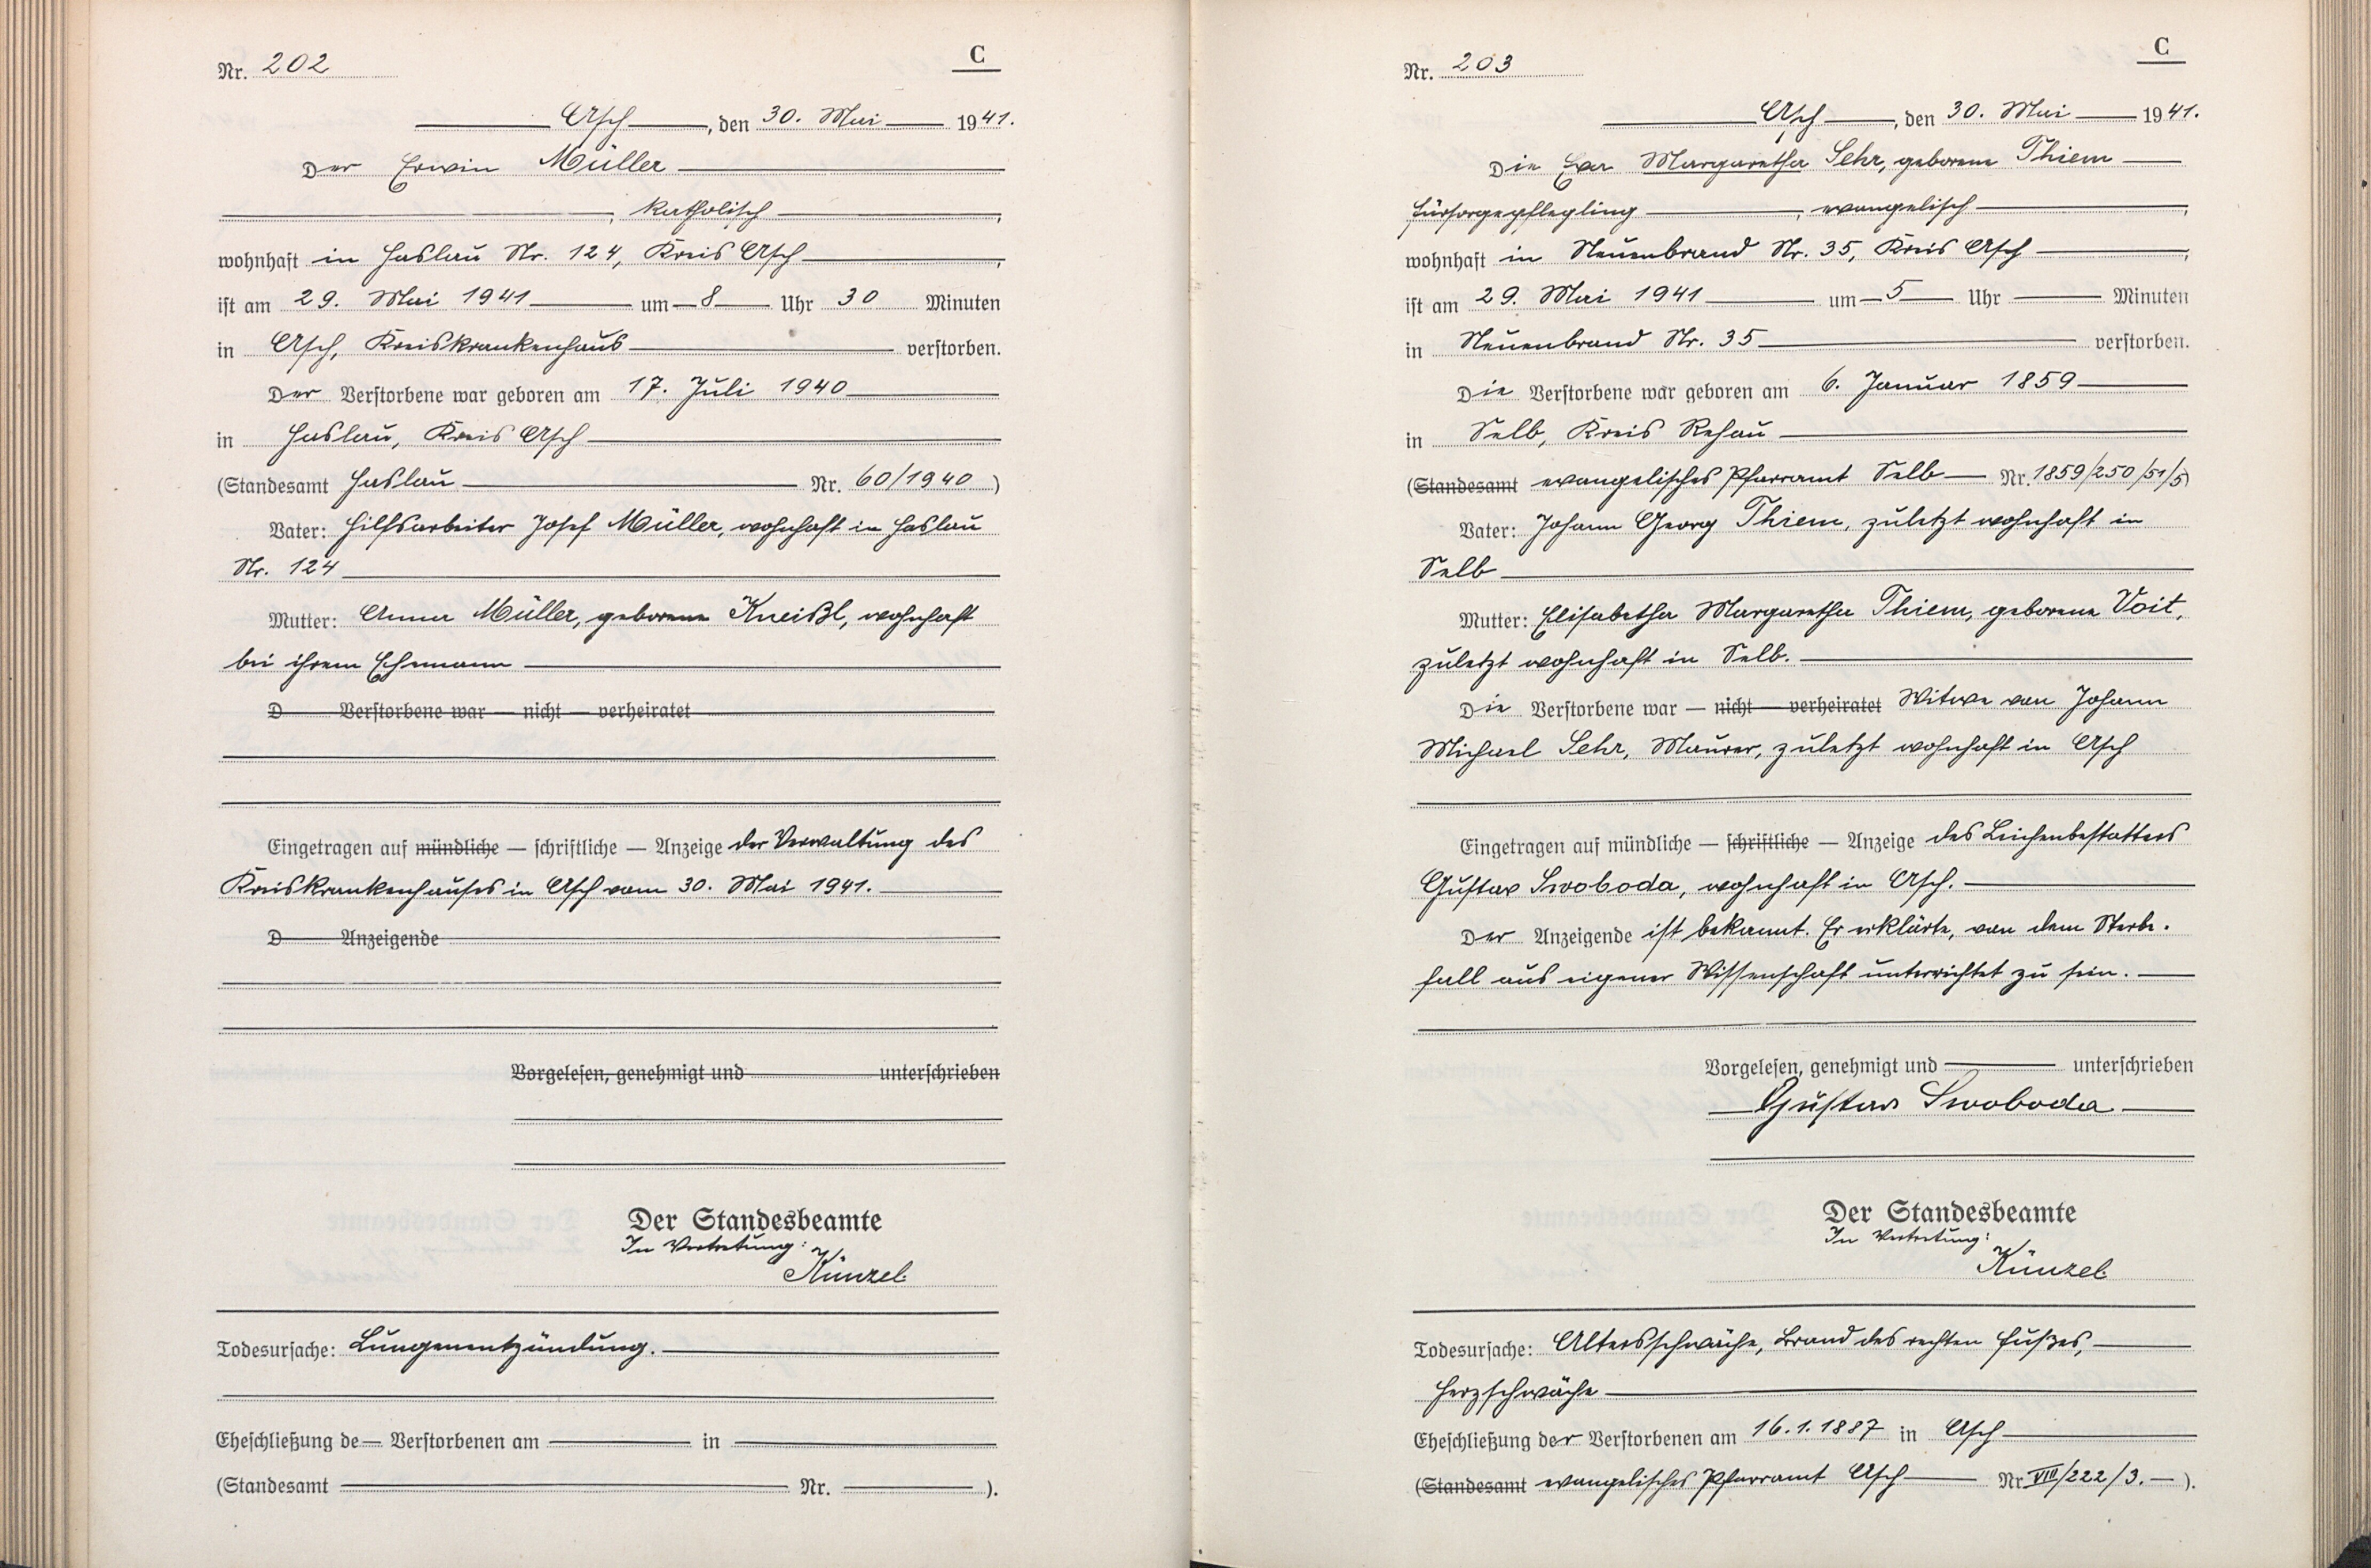 Nr. 202
C
Asch, den 30. Mai 1941.
Der Erwin Müller
, katholisch,
wohnhaft in Haslau Nr. 124, Kreis Asch,
ist am 29. Mai 1941 um 8 Uhr 30 Minuten
in Asch, Kreiskrankenhaus verstorben.
Der Verstorbene war geboren am 17. Juli 1940
in Haslau, Kreis Asch
(Standesamt Haslau Nr. 60/1940)
Vater: Hilfsarbeiter Josef Müller, wohnhaft in Haslau
Nr. 124
Mutter: Anna Müller, geborene Kneißl, wohnhaft
bei ihrem Ehemann
D Verstorbene war — nicht — verheiratet
Eingetragen auf mündliche — schriftliche — Anzeige der Verwaltung des
Kreiskrankenhauses in Asch vom 30. Mai 1941.
D Anzeigende
Vorgelesen, genehmigt und unterschrieben
Der Standesbeamte
In Vertretung:
Künzel
Todesursache: Lungenentzündung.
Eheschließung de— Verstorbenen am in
(Standesamt Nr. ).
Nr. 203
C
Asch, den 30. Mai 1941.
Die Eva Margaretha Sehr, geborene Thiem
Fürsorgepflegling, evangelisch,
wohnhaft in Neuenbrand Nr. 35, Kreis Asch,
ist am 29. Mai 1941 um 5 Uhr — Minuten
in Neuenbrand Nr. 35 verstorben.
Die Verstorbene war geboren am 6. Januar 1859
in Selb, Kreis Rehau
(Standesamt evangelisches Pfarramt Selb — Nr. 1859/250/51/5)
Vater: Johann Georg Thiem, zuletzt wohnhaft in
Selb
Mutter: Elisabetha Margaretha Thiem, geborene Voit,
zuletzt wohnhaft in Selb.
Die Verstorbene war — nicht — verheiratet Witwe von Johann
Michael Sehr, Maurer, zuletzt wohnhaft in Asch
Eingetragen auf mündliche — schriftliche — Anzeige des Leichenbestatters
Gustav Swoboda, wohnhaft in Asch.
Der Anzeigende ist bekannt. Er erklärte, von dem Sterbe-
fall aus eigener Wissenschaft unterrichtet zu sein.
Vorgelesen, genehmigt und unterschrieben
Gustav Swoboda
Der Standesbeamte
In Vertretung:
Künzel
Todesursache: Altersschwäche, Brand des rechten Fußes,
Herzschwäche
Eheschließung der Verstorbenen am 16.1.1887 in Asch
(Standesamt evangelisches Pfarramt Asch — Nr. VIII/222/3. — ).